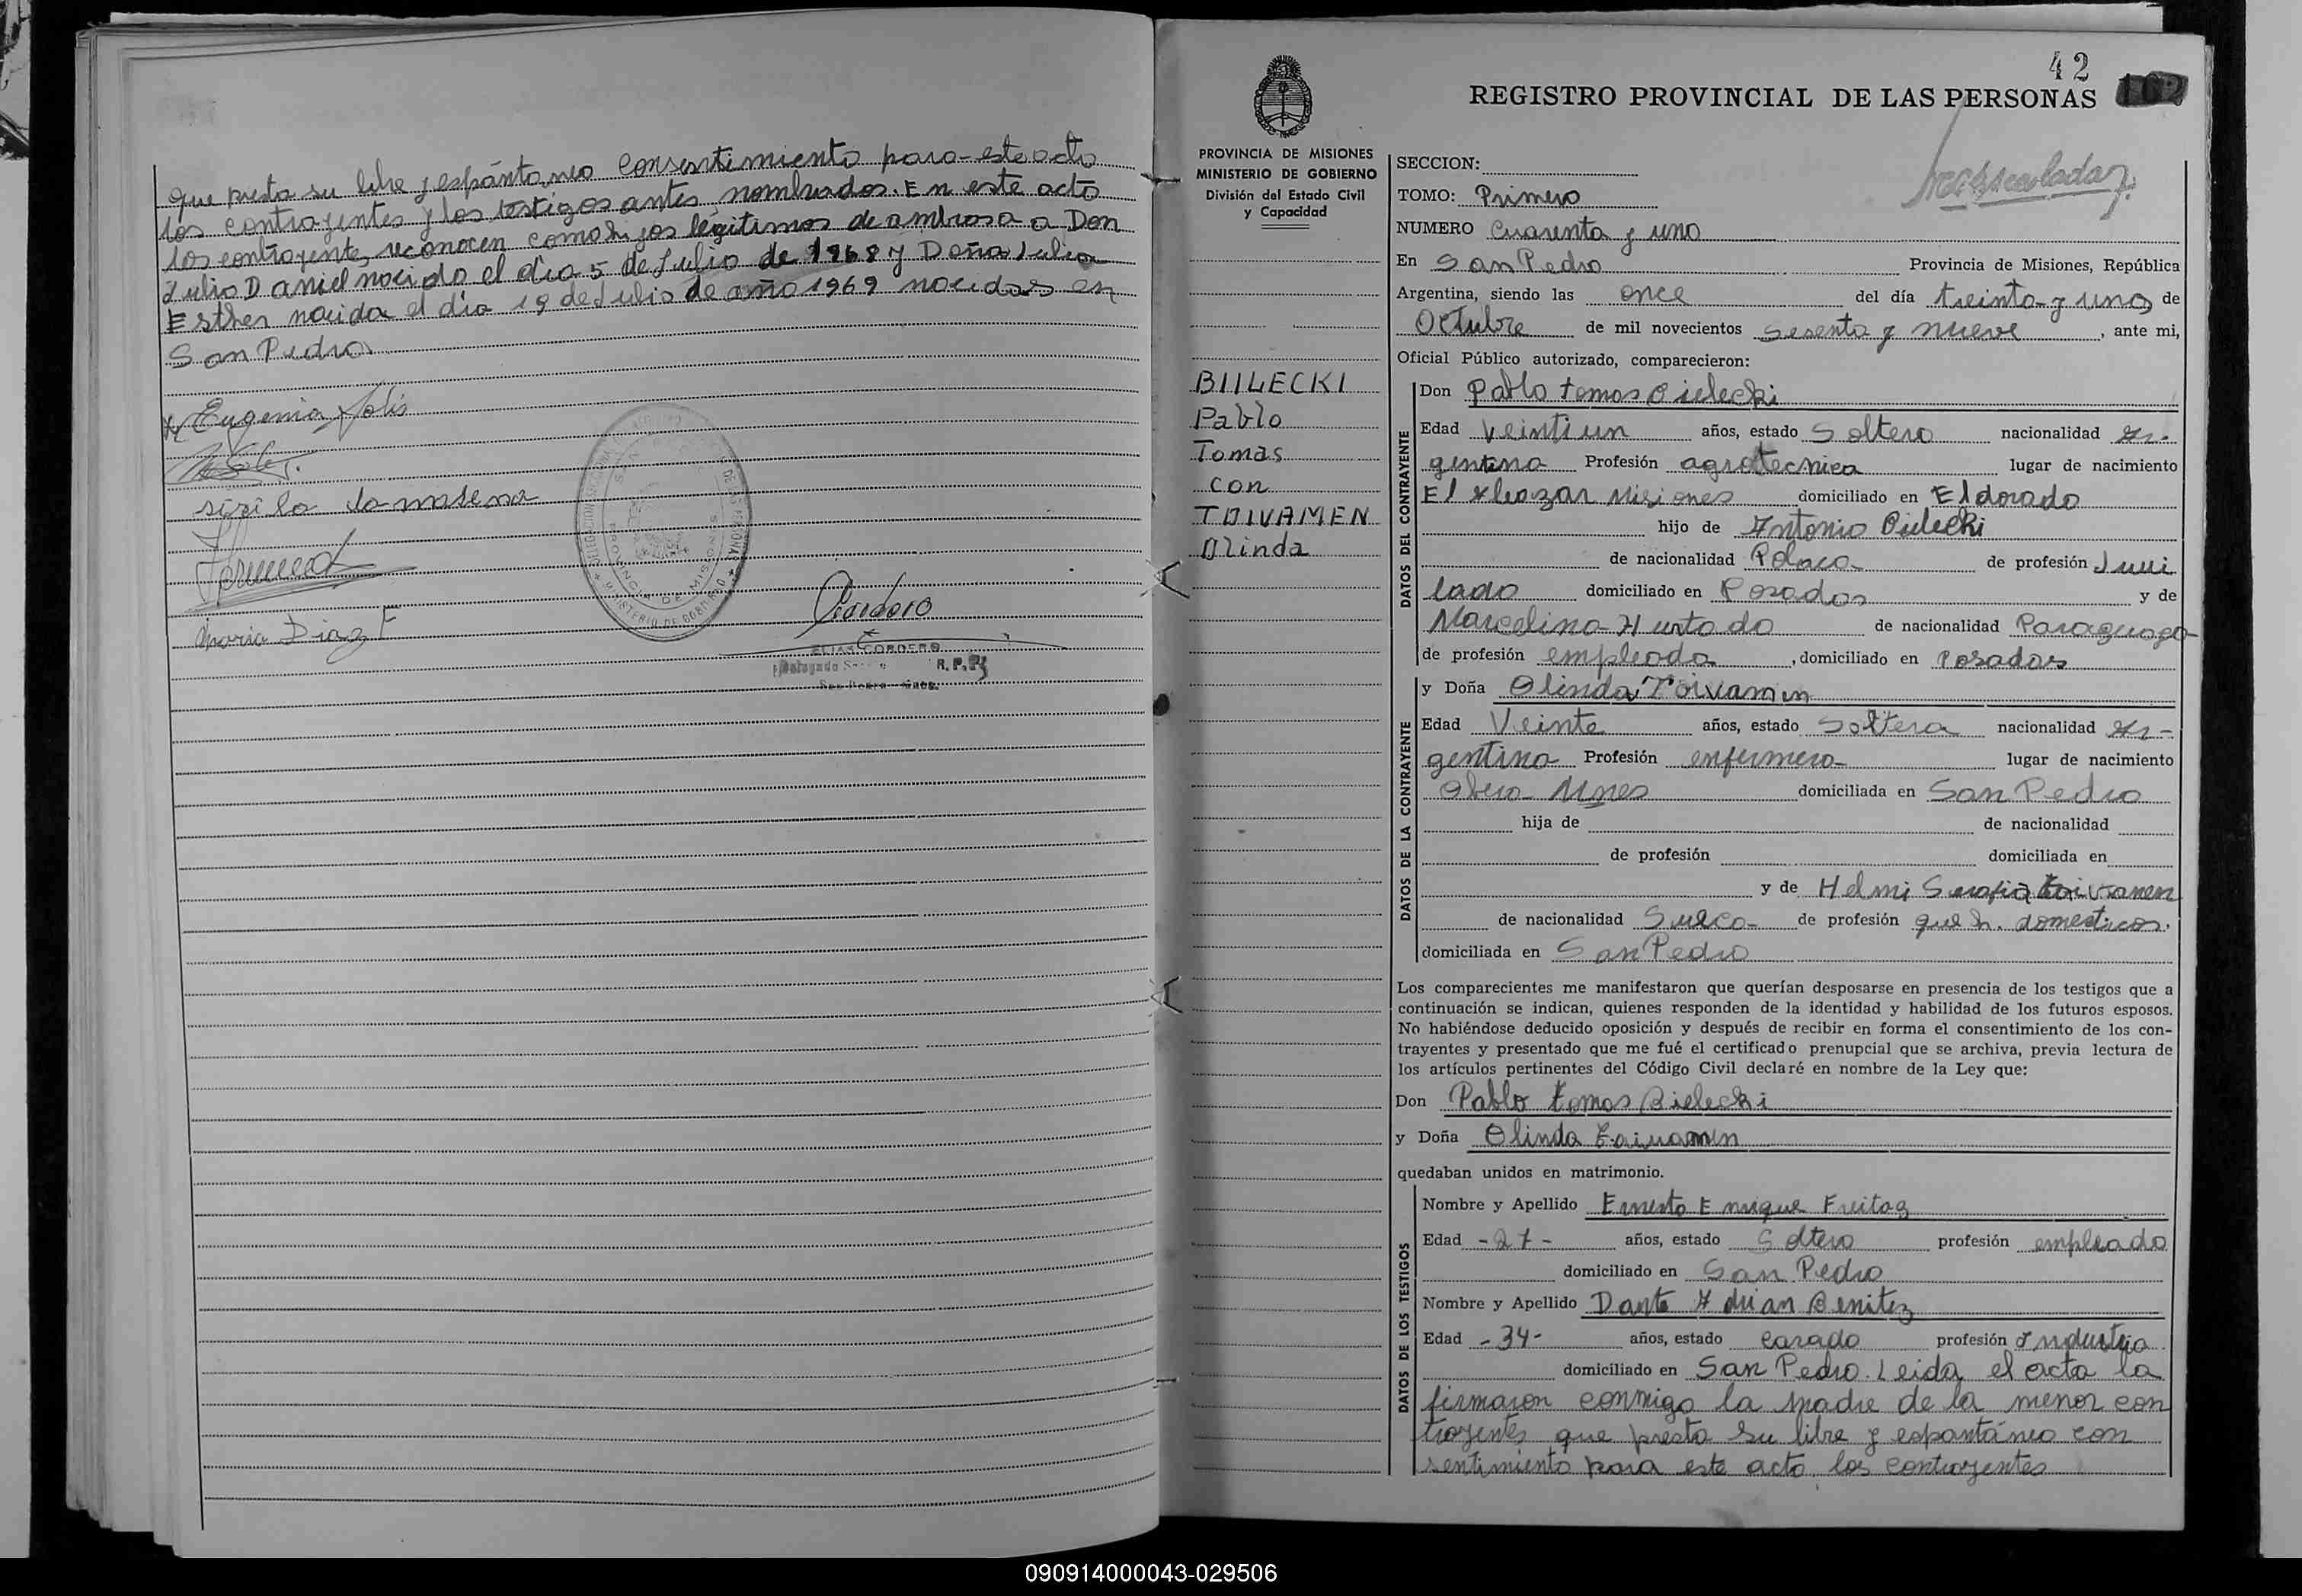 que presta su libre y espántaneo consentimiento para este acto
los contrayentes y los testigos antes nombrados. En este acto
los contrayentes reconocen como hijos légitimos de ambrosa a Don
Julio Daniel nacido el día 5 de Julio de 1968 y Doña Julia
Esther nacida el día 19 de Julio de año 1969 nacidos en
San Pedro
Eugenia Solis
María Diaz F
Cordero
ELIAS CORDERO
R. P.
42
REGISTRO PROVINCIAL DE LAS PERSONAS
PROVINCIA DE MISIONES
MINISTERIO DE GOBIERNO
División del Estado Civil
y Capacidad
BIILECKI
Pablo
Tomas
con
TOIVAMEN
Olinda
SECCION:
TOMO: Primero
NUMERO Cuarenta y uno
En San Pedro Provincia de Misiones, República
Argentina, siendo las once del día treinta y uno de
Octubre de mil novecientos sesenta y nueve, ante mi,
Oficial Público autorizado, comparecieron:
DATOS DEL CONTRAYENTE
Don Pablo tomas Bielecki
Edad Veintiun años, estado Soltero nacionalidad Ar-
gentina Profesión agrotecnica lugar de nacimiento
El Alcazar Misiones domiciliado en Eldorado
hijo de Antonio Bielecki
de nacionalidad Polaca de profesión Juvi
lado domiciliado en Posadas y de
Marcelina Hurtado de nacionalidad Paraguaya
de profesión empleada, domiciliado en Posadas
DATOS DE LA CONTRAYENTE
y Doña Olinda Toivamen
Edad Veinte años, estado Soltera nacionalidad Ar-
gentina Profesión enfermera lugar de nacimiento
Obera Mnes domiciliada en San Pedro
hija de de nacionalidad
de profesión domiciliada en
y de Helmi Serafia toivanen
de nacionalidad Sueca de profesión queh. domesticos.
domiciliada en San Pedro
Los comparecientes me manifestaron que querían desposarse en presencia de los testigos que a
continuación se indican, quienes responden de la identidad y habilidad de los futuros esposos.
No habiéndose deducido oposición y después de recibir en forma el consentimiento de los con-
trayentes y presentado que me fué el certificado prenupcial que se archiva, previa lectura de
los artículos pertinentes del Código Civil declaré en nombre de la Ley que:
Don Pablo tomas Bielecki
y Doña Olinda toivamen
quedaban unidos en matrimonio.
DATOS DE LOS TESTIGOS
Nombre y Apellido Ernesto Enrique Freitag
Edad -27- años, estado Soltero profesión empleado
domiciliado en San Pedro
Nombre y Apellido Dante Adrian Benitez
Edad -34- años, estado casado profesión Industria
domiciliado en San Pedro. Leida el acta la
firmaron conmigo la madre de la menor con
trayentes que presta su libre y espontáneo con
sentimiento para este acto, los contrayentes
090914000043-029506